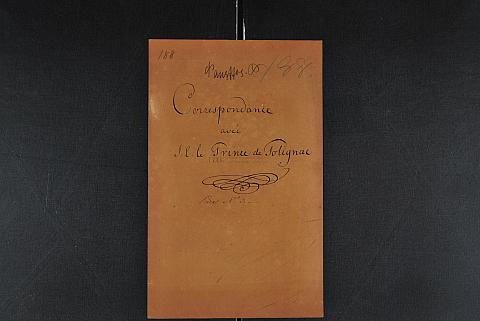 188
Correspondance
avec
S. E. le Prince de Polignac
N° 3.